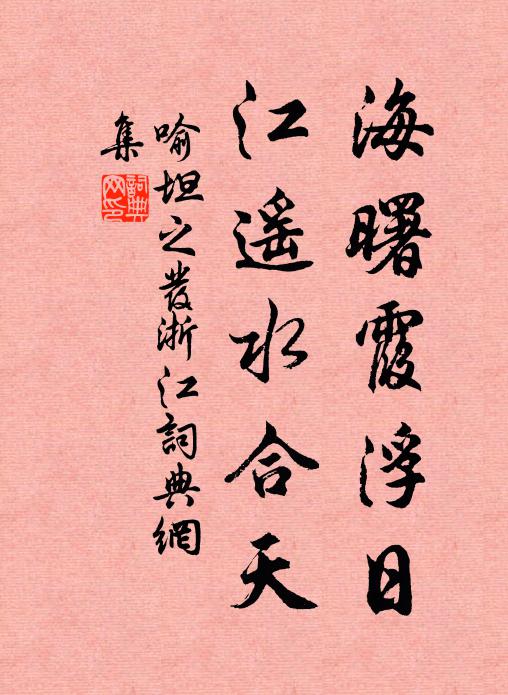 海曙霞浮日
江遥水合天
喻坦之發浙江詞典網
集
詞典网印